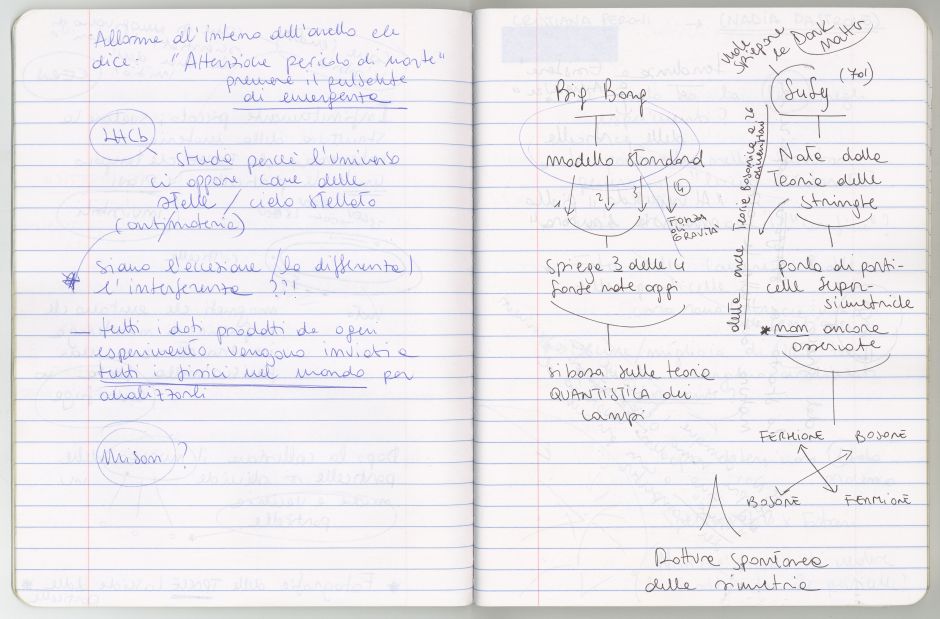 Allarme all'interno dell'anello che
dice: "Attenzione pericolo di morte"
premere il pulsante
di emergenza
LHCb
studia perché l'universo
ci appare come delle
stelle / cielo stellato
(antimateria)
* siamo l'eccezione / la differenza /
l'interferenza ??!
— tutti i dati prodotti da ogni
esperimento vengono inviati a
tutti i fisici nel mondo per
analizzarli
Muson ?
Big Bang
modello standard
1 2 3 4
FORZA
di
GRAVITÀ
spiega 3 delle 4
forze note oggi
si basa sulla teoria
QUANTISTICA dei
campi
vuole
spiegare
la Dark
Matter
SuSy (70)
Nata dalla
Teoria delle
stringhe
detta anche Teoria Bosonica a 26
dimensioni
parla di parti-
celle super-
simmetriche
* non ancora
osservate
FERMIONE BOSONE
BOSONE FERMIONE
Rottura spontanea
della simmetria